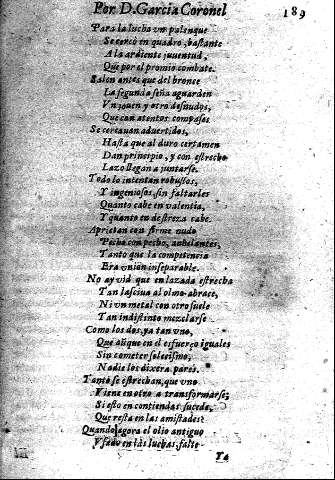 Por D. Garcia Coronel 189
Para la lucha vn palenque
Se cercò en quadro, bastante
A la ardiente juuentud,
Que por el premio combate.
Salen antes que del bronce
La segunda seña aguarden
Vn jouen y otro desnudos,
Que con atentos compases
Se cercauan aduertidos,
Hasta que al duro certamen
Dan principio, y con estrecho
Lazo llegan a juntarse.
Todo lo intentan robustos,
Y ingeniosos, sin faltarles
Quanto cabe en valentia,
Y quanto en destreza cabe.
Aprietan con firme nudo
Pecho con pecho, anhelantes,
Tanto que la competencia
Era vnion inseparable.
No ay vid que en lazada estrecha
Tan lasciua al olmo abrace,
Ni vn metal con otro suele
Tan indistinto mezclarse
Como los dos, ya tan vno,
Que aũque en el esfuerço iguales
Sin cometer solecismo,
Nadie los dixera pares.
Tanto se estrechan, que vno
Viene en otro a transformarse;
Si esto en contiendas sucede,
Que resta en las amistades?
Quando agora el olio antiguo
Vsado en las luchas, falte
Y a